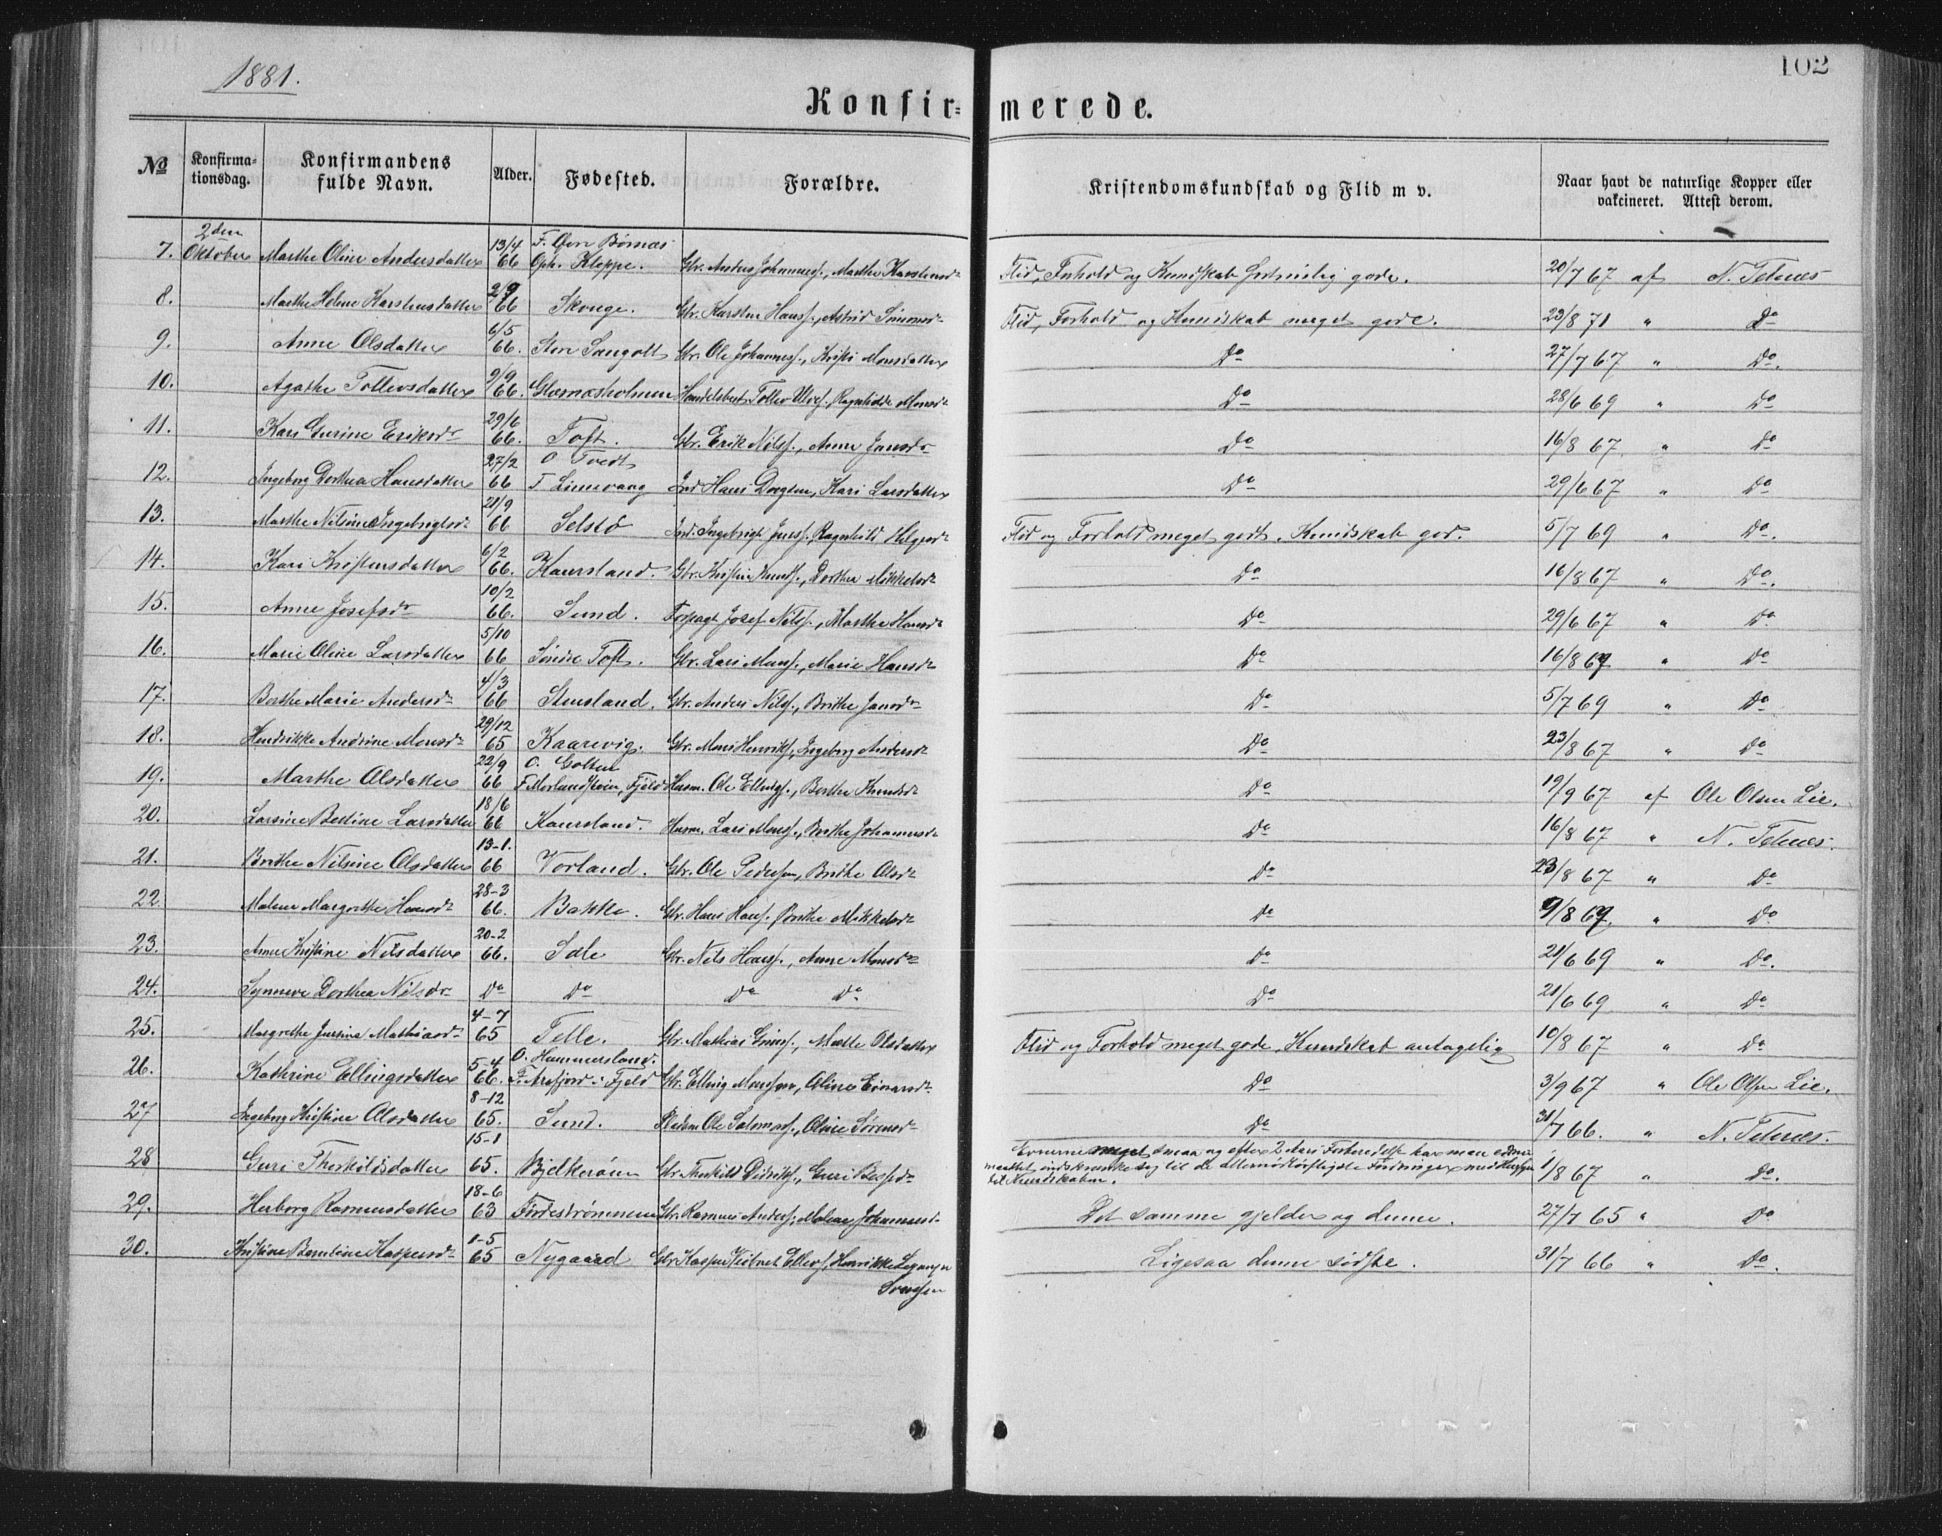 1881.
102
Konfir- merede.
№ Konfirma-tionsdag. Konfirmandens fulde Navn. Alder. Fødested. Forældre. Kristendomskundskab og Flid m v. Naar havt de naturlige Kopper eller vakcineret. Attest derom.
7. 2den Oktober Marthe Oline Andersdatter 13/4 66 F. Øvre Børnæs Oph. Kleppe. Gbr. Anders Johanness., Marthe Karstensdr Flid, Forhold og Kundskab gode. 20/7 67 af N. Telnes
8. Marthe Helene Karstensdatter 2/9 66 Skoge. Gbr. Karsten Hanss., Astrid Simonsdr Flid, Forhold og Kundskab meget gode. 23/8 71 " Do
9. Anne Olsdatter 6/5 66. Store Sangolt Gbr. Ole Johanness., Kristi Monsdatter Do 27/7 67 " Do.
10. Agathe Tollevsdatter 9/9 66. Glæsnæsholmen Handelsbet. Tollev Ulvs., Ragnhilde Monsdr Do 28/6 69 " Do
11. Kari Gurine Eriksdr 29/6 66. Toft. Gbr. Erik Nilss., Anne Jansdr Do 16/8 67 " Do
12. Ingeborg Dorthea Hansdatter 27/2 66 O Tvedt F Limevaag Ind Hans, Kari Larsdatter Do 29/6 67 " Do
13. Marthe Nilsine Ingebrigtsdr 21/9 66 Selstø Ind. Ingebrigt Jenss., Ragnhild Helgesdr Flid og Forhold meget godt. Kundskab god. 5/7 69 " Do.
14. Kari Kristensdatter 6/2 66. Kaursland. Gbr. Kristen Knuds., Dorthea Mikkelsdr Do 16/8 67 " Do.
15. Anne Josefsdr 10/2 66. Sund. Forpagt Josef Nilss., Marthe Hansdr Do 29/6 67 " Do
16. Marie Oline Larsdatter 5/10 66 Søndre Toft. Gbr. Lars Monss., Marie Hansdr Do 16/8 67 " Do
17. Berthe Marie Andersdr 4/3 66 Steusland. Gbr. Anders Nilss., Brithe Jansdr Do 5/7 69 " Do
18. Hendrikke Andrine Monsdr 29/12 65 Kaarevig. Gbr. Mons Henriks., Ingeborg Andersdr Do 23/8 67 " Do
19. Marthe Olsdatter 22/9 66 O. Golten F. Morland, Fjeld Husm. Ole Ellings., Berthe Knudsdr Do 19/9 67 af Ole Olsen Lie.
20. Larsine Bertine Larsdatter 18/6 66 Kaursland. Husm. Lars Monss., Brithe Johannesdr Do 16/8 67 " N. Telnes.
21. Brithe Nilsine Olsdatter 13-1. 66 Vorland. Gbr. Ole Pedersen, Brithe Olsdr Do 23/8 67 " Do
22. Malene Margrethe Hansdr 28-3 66. Bakke. Gbr. Hans Hanss. Brithe Mikkelsdr Do 9/8 67 " Do
23. Anne Kristine Nilsdatter 20-2 66. Idle Gbr. Nils Hanss., Anne Monsdr Do 21/6 69 " Do.
24. Synneve Dorthea Nilsdr Do Do Do Do Do 21/6 69 " Do
25. Margrethe Jensina Mathiasdr 4-7 65 Telle. Gbr. Mathias Grims., Marte Olsdatter Flid og Forhold meget gode. Kundskab antagelig 10/8 67 " Do
26. Kathrine Ellingsdatter 5-4 66. O. Hammersland. F. Arefjord i Fjeld Gbr. Elling Monssen, Oline Einarsdr Do 3/9 67 " Ole Olsen Lie.
27 Ingeborg Kristine Olsdatter 8-12 65. Sund. Ole Salomons., Oline Sørensdr Do 31/7 66. " N. Telnes.
28 Guri Therkildsdatter 15-1 65. Bjelkerøen Gbr. Therkild Didriks., Guri Evnerne meget smaa og efter 2 Aars Forberedelse har man endnu maattet indskrænke sig til de allernødtørftigste Fordringer med Hensyn til Kundskaben. 1/8 67 " Do.
29. Herborg Rasmusdatter 18-6 63 Førdestrømmen Gbr. Rasmus Anders., Malene Johannesdr Det samme gjelder og denne. 27/7 65 " Do
30. Kristine Kaspersdr 1-5 65 Nygaard Gbr. Kasper Ellers., Henrikke Ligesaa denne sidste. 31/7 66 " Do.